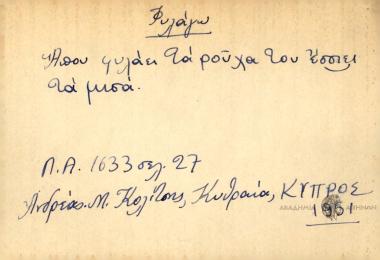 Φυλάγω
Άπου φυλάει τά ρούχα του ἔσιει
τά μισά.
Λ.Α. 1633 σελ. 27
Ἀνδρέας Μ. Κολίτσης, Κυθραία, ΚΥΠΡΟΣ
ΑΚΑΔΗΜΙΑ ΑΘΗΝΩΝ
1951